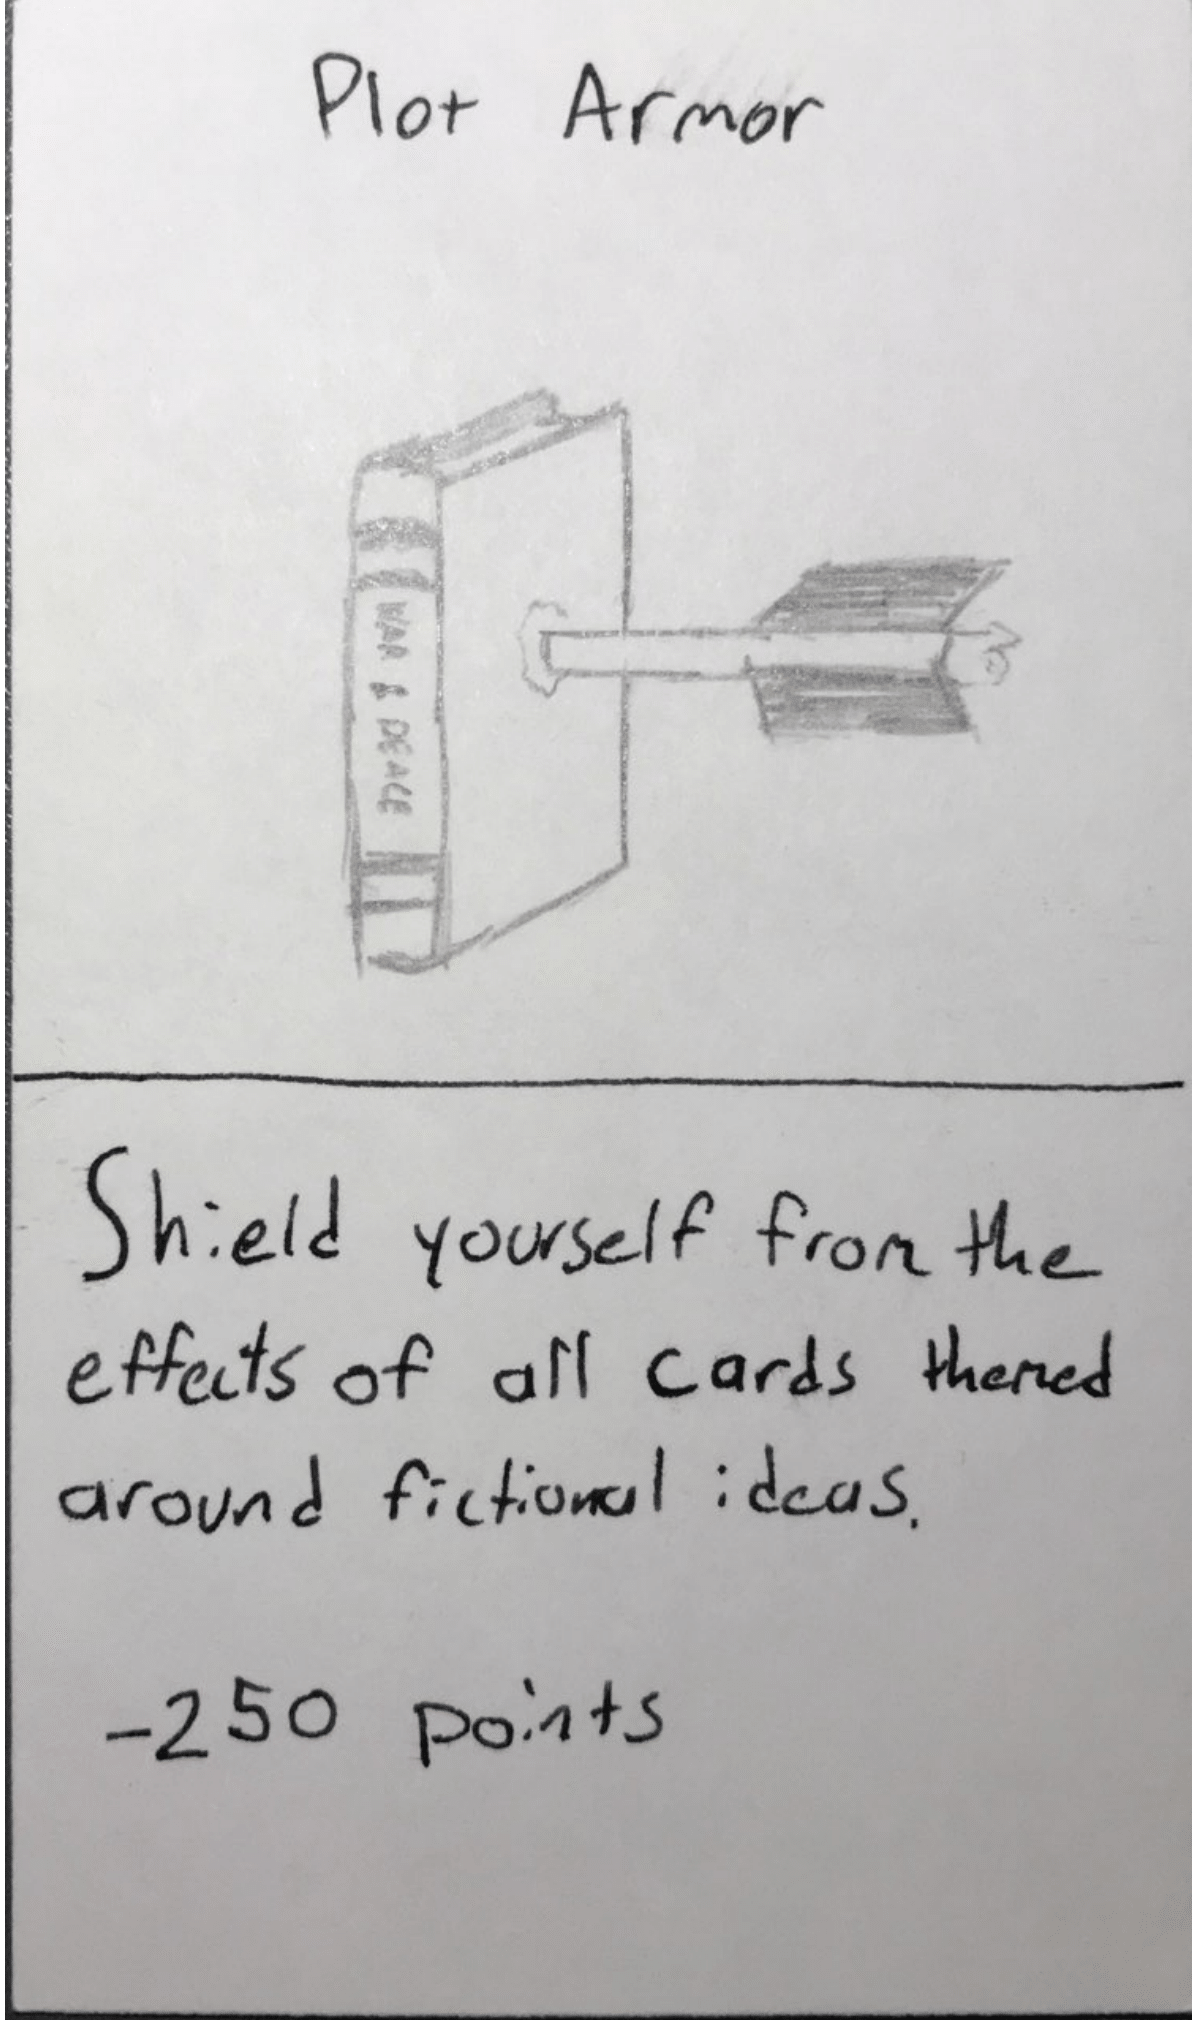 Plot Armor
WAR & PEACE
Shield yourself from the
effects of all cards themed
around fictional ideas.
-250 points